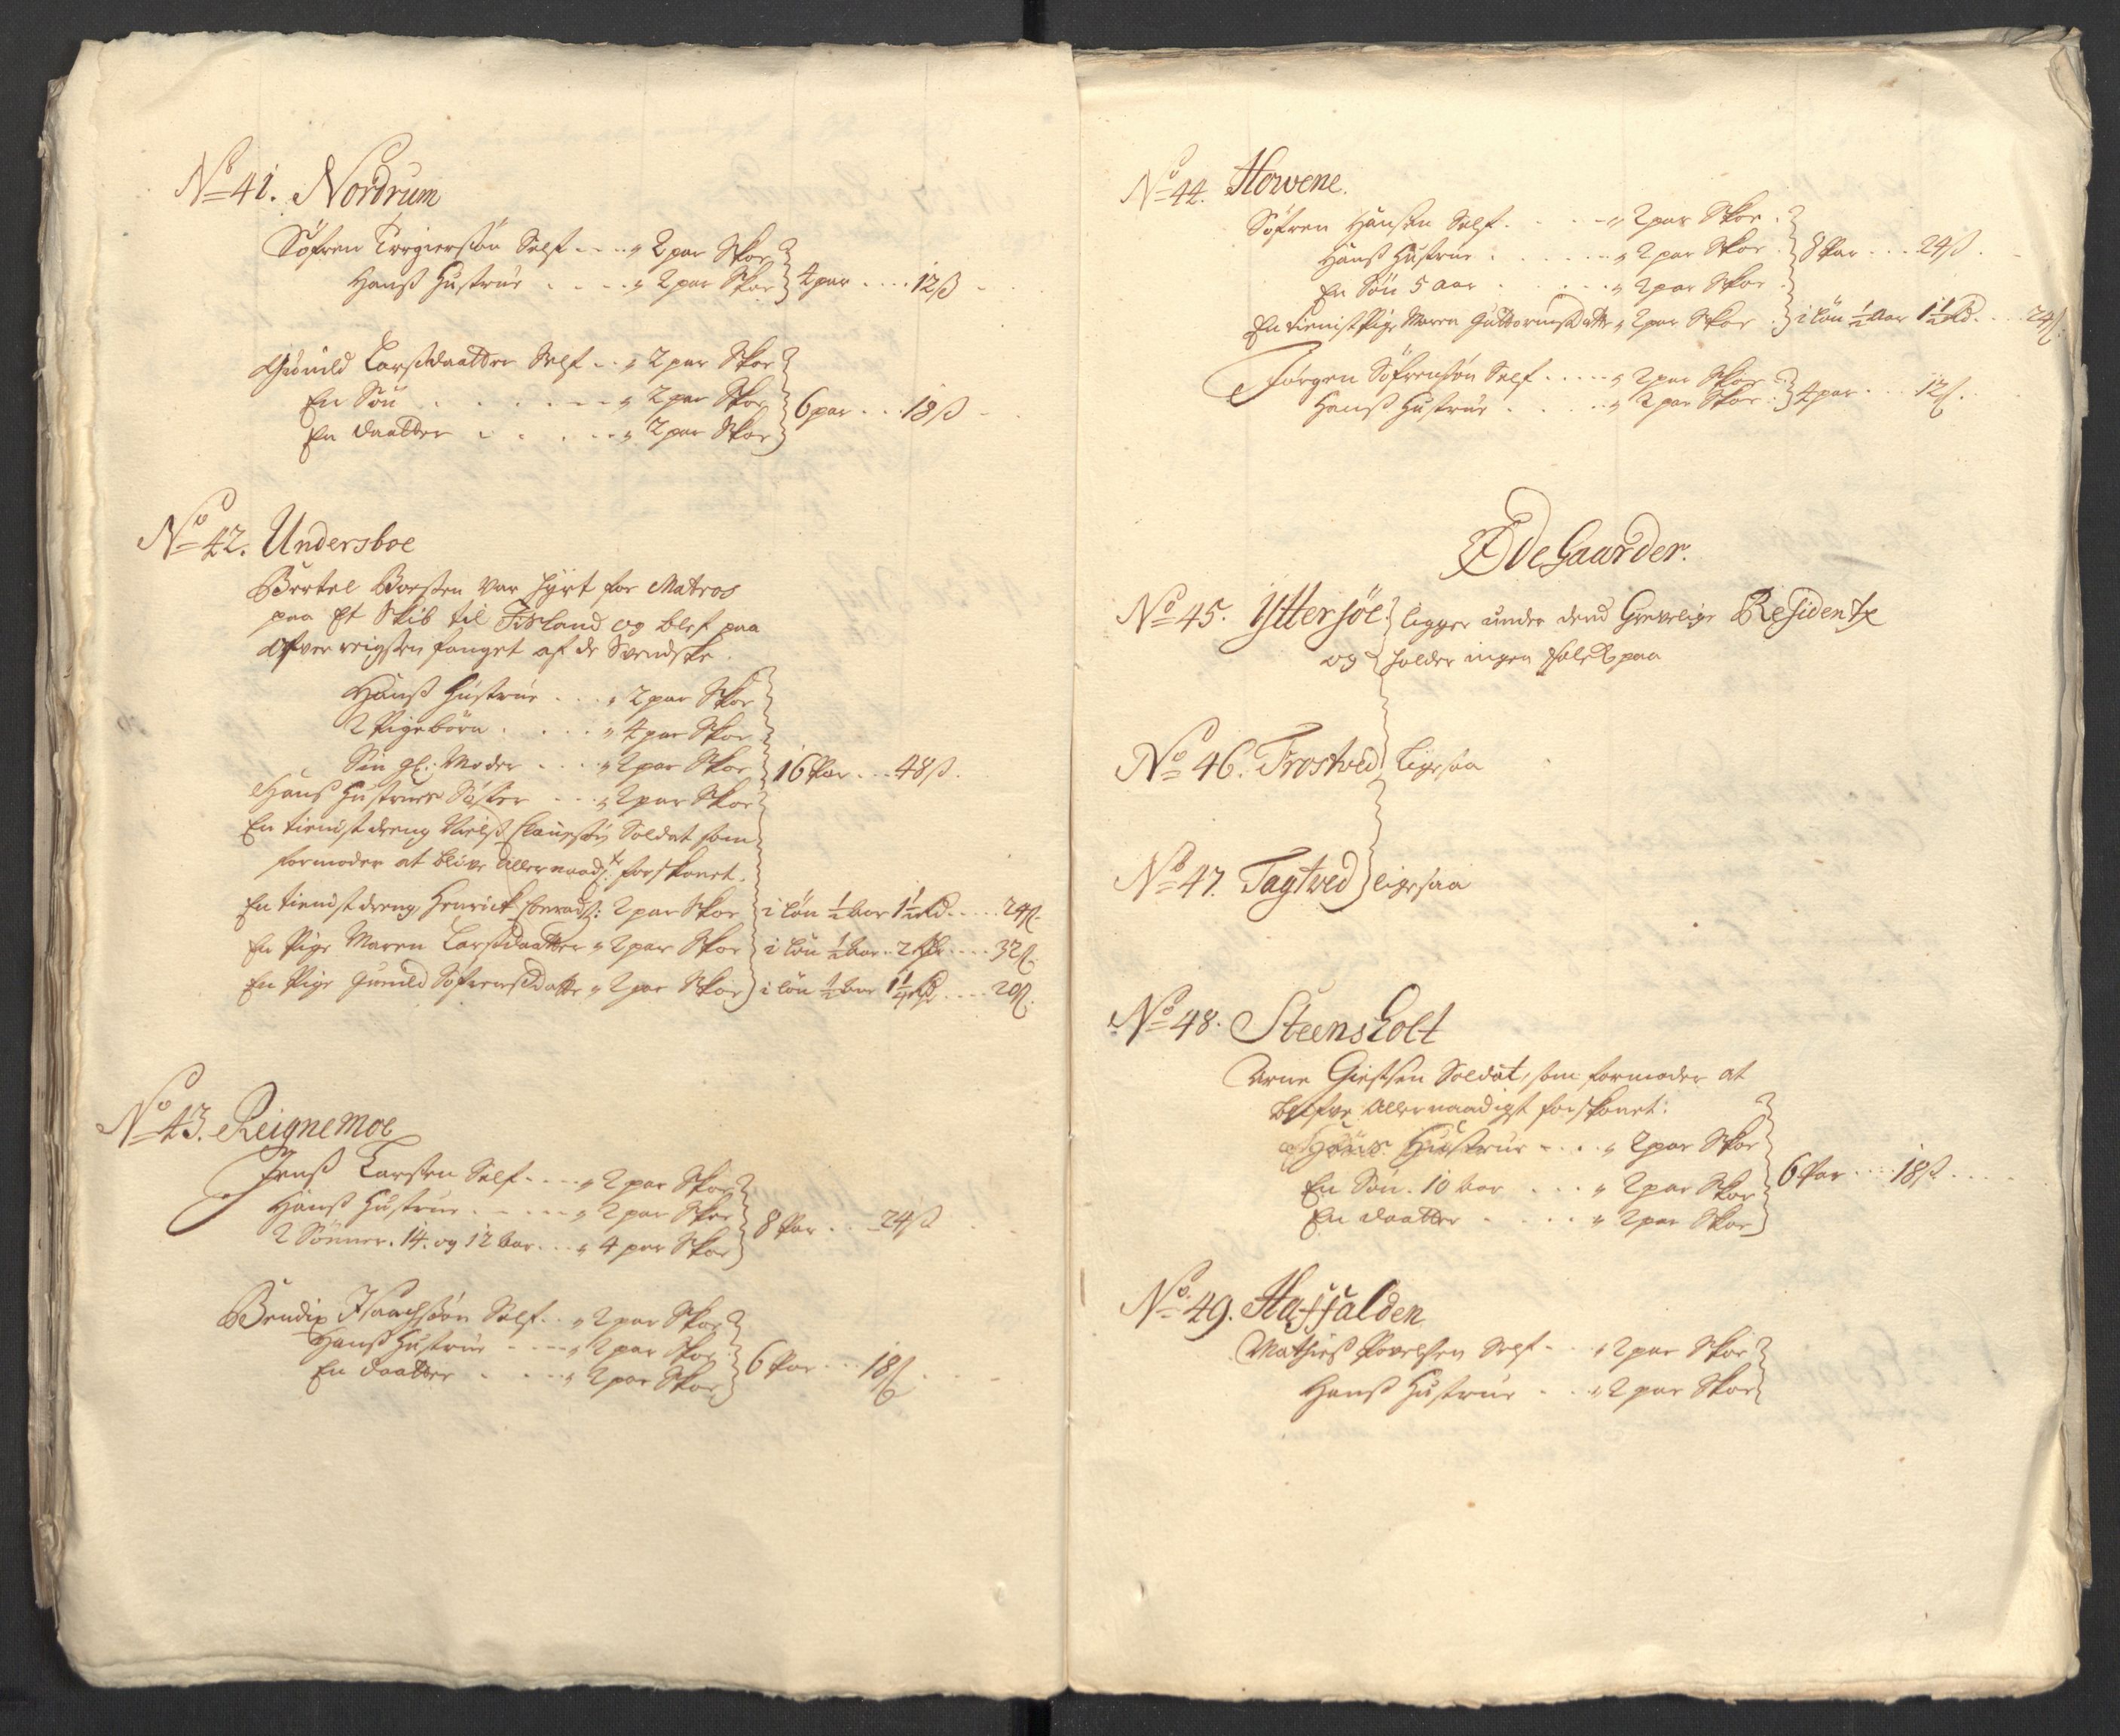 No 41. Nordrum
Söfren Torgiersön Self .... „ 2 par Skoe
Hanß Hustrue .... „ 2 par Skoe } 4 par .... 12ß
Gunild Larßdaatter Self .. „ 2 par Skoe
En Sön ...... „ 2 par Skoe } 6 par ... 18ß
En daatter ..... „ 2 par Skoe
No 42. Undersboe
Bertel Boesen var hyrt for Matros
paa Et Skib til Island og blef paa
reigsen fanget af de Svendske.
Hanß Hustrue ... „ 2 par Skoe
2 Pigebörn .... „ 4 par Skoe
Sin gl: Moder ... „ 2 par Skoe } 16 Par ... 48ß.
Hanß Hustrues Söster ... „ 2 par Skoe
En tienist dreng Nielß Claussön Soldat som
formoder at blive Allernaadt: forskonet.
En tienist dreng, Henrich : 2 par Skoe } i lön ½ Aar 1½ Rd ..... 24ß.
En Pige Maren Larßdaatter „ 2 par Skoe } i lön ½ Aar. 2 Rd .... 32ß.
En Pige Gunild Söfrensdatter „ 2 par Skoe } i lön ½ Aar 1¼ Rd .... 20ß.
No 43. Reignemoe
Jenß Larsen Self .... „ 2 par Skoe
Hanß Hustrue ..... „ 2 par Skoe } 8 Par ... 24ß
2 Sönner. 14. og 12 Aar ... „ 4 par Skoe
Bendix Isaachsön Self .. „ 2 par Skoe
Hanß Hustrue .... „ 2 par Skoe } 6 Par ... 18ß
En daatter .... „ 2 par Skoe
No 44. Howene.
Söfren Hansen Self ..... „ 2 par Skoe
Hanß Hustrue ...... „ 2 par Skoe } 8 Par ... 24ß.
En Sön 5 aar ..... „ 2 par Skoe
En tienist Pige Maren Guttormsdatter „ 2 par Skoe } i lön ½ Aar 1½ Rd. ... 24ß:
Jörgen Söfrensön Self ..... „ 2 par Skoe
Hanß Hustrue ..... „ 2 par Skoe } 4 par ... 12ß.
Øde Gaarder.
No 45. Yttersöe } ligger under dend Grevelige Residentz
og } holder ingen folck paa
No 46. Trostved } Ligesaa
No 47. Tagtved } ligesaa
No 48. Steensholt
Arne Giefsen Soldat, som formoder at
blifve Allernaadigst forskonet:
Hans Hustrue .... „ 2 par Skoe
En Sön. 10 Aar ... „ 2 par Skoe } 6 Par ... 18ß ....
En daatter .... „ 2 par Skoe
No. 49. Haffalden
Mathies Povelsen Self ... „ 2 par Skoe
Hanß Hustrue ... „ 2 par Skoe